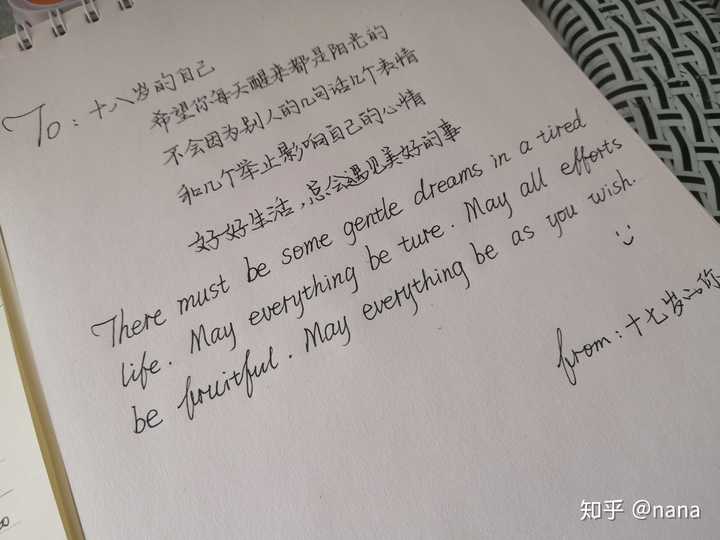 To：十八岁的自己
希望你每天醒来都是阳光的
不会因为别人的几句话几个表情
和几个举止影响自己的心情
好好生活，总会遇见美好的事
There must be some gentle dreams in a tired
life. May everything be ture. May all efforts
be fruitful. May everything be as you wish.
from：十七岁的你
知乎 @nana